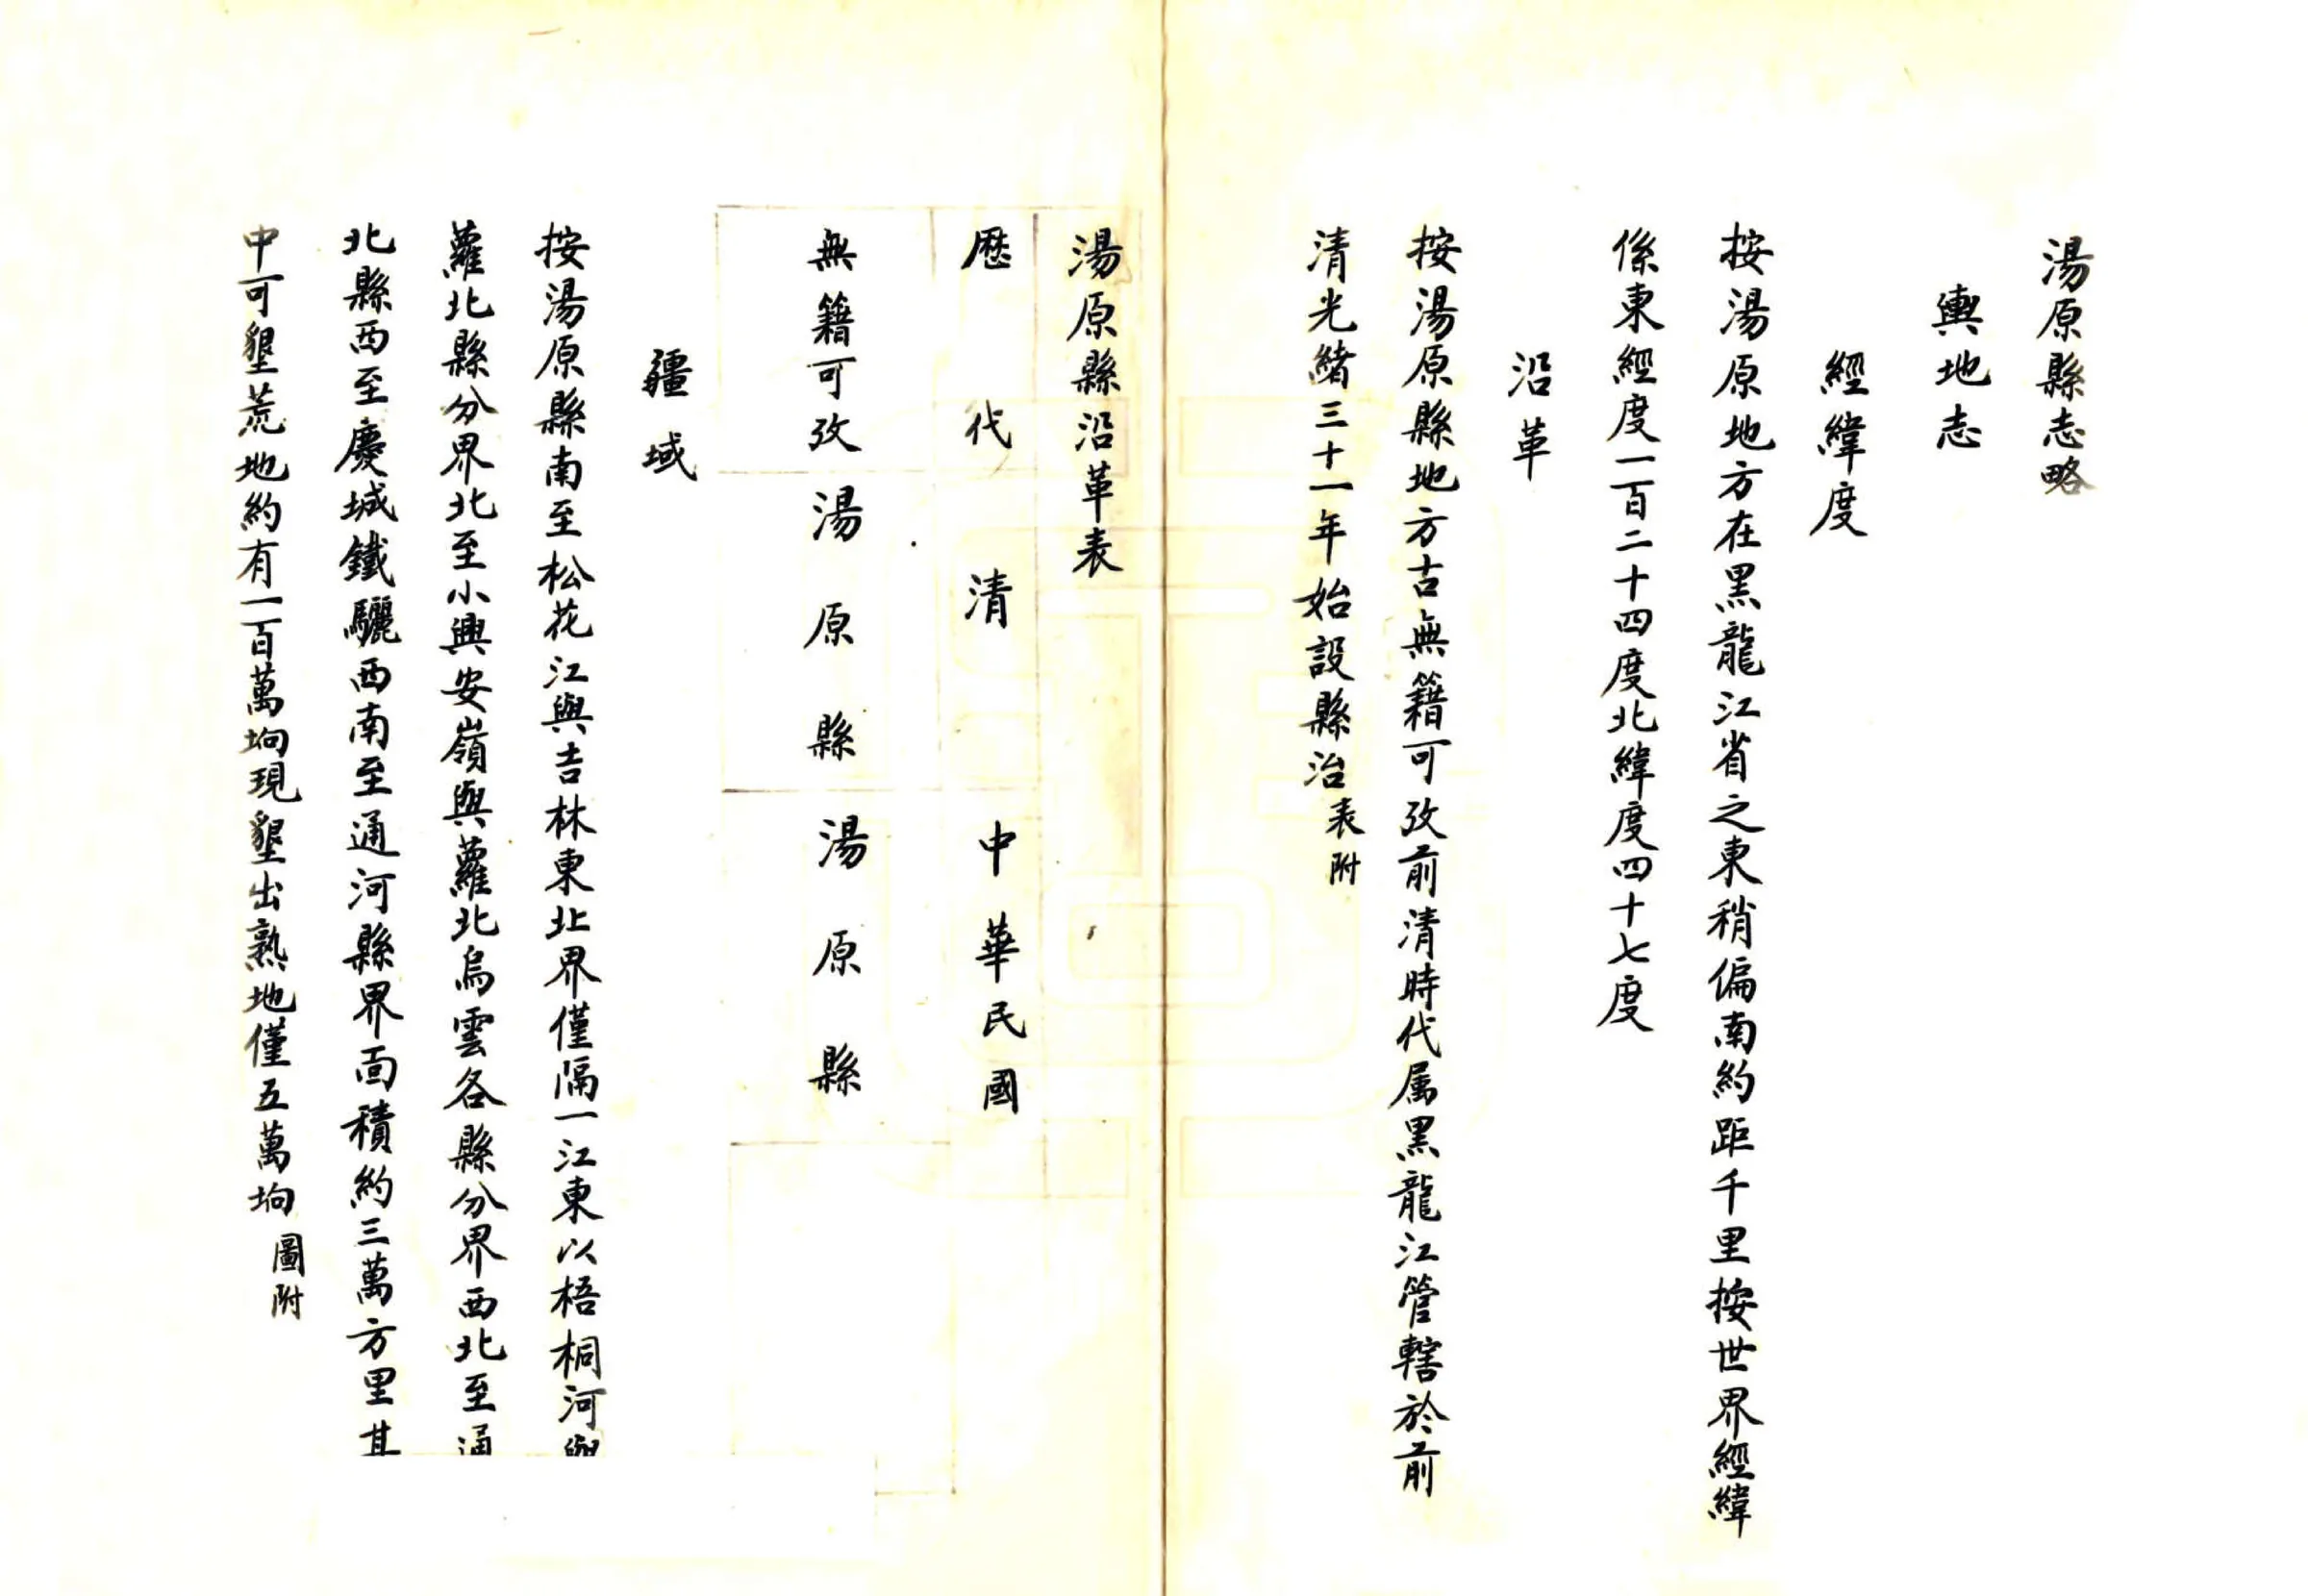 湯原縣志略
輿地志
經緯度
按湯原地方在黑龍江省之東稍偏南約距千里按世界經緯
係東經度一百二十四度北緯度四十七度
沿革
按湯原縣地方古無籍可攷前清時代属黑龍江管轄於前
清光緒三十一年始設縣治表附
湯原縣沿革表
歷代 清 中華民國
無籍可攷 湯原縣 湯原縣
疆域
按湯原縣南至松花江與吉林東北界僅隔一江東以梧桐河與
蘿北縣分界北至小興安嶺與蘿北烏雲各縣分界西北至通
北縣西至慶城鐵驪西南至通河縣界面積約三萬方里其
中可墾荒地約有一百萬垧現墾出熟地僅五萬垧圖附